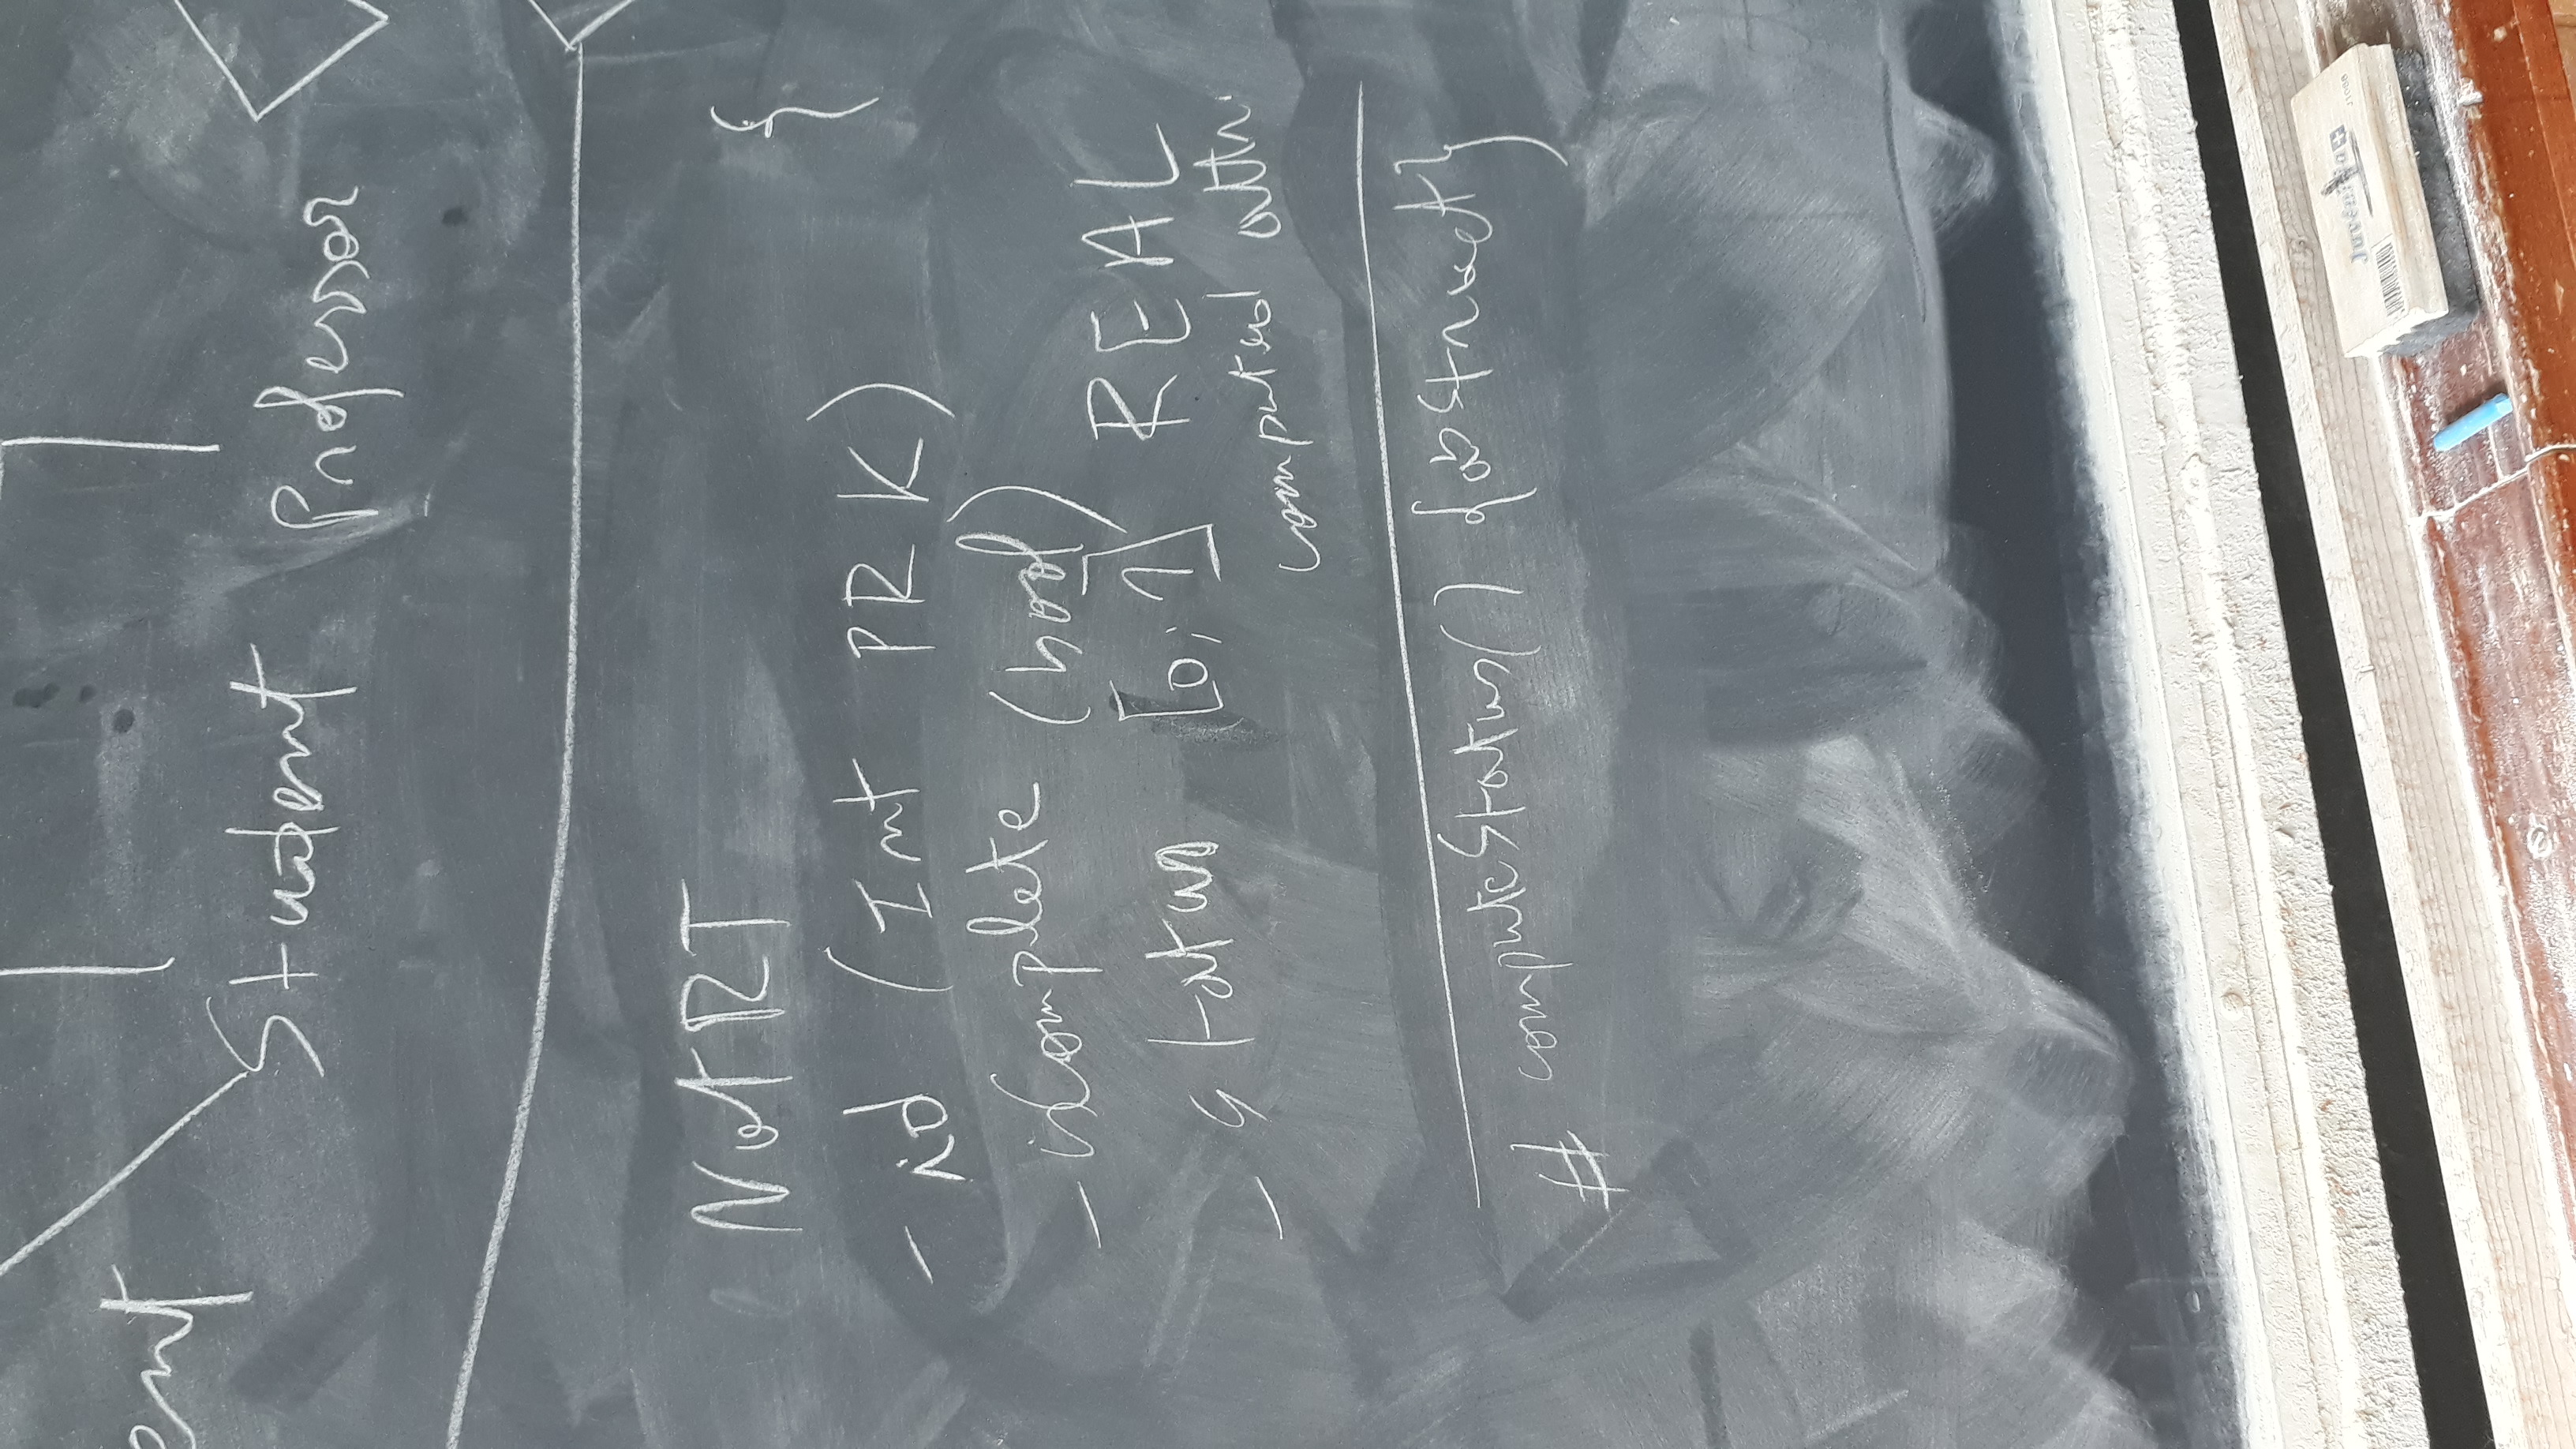 ent
Student Professor
NotRT
{
- id (Int PRK)
- isComplete (bool)
- status [0; 1] REAL
computed attr.
# computeStatus() {abstract}
Juventa+ J1080